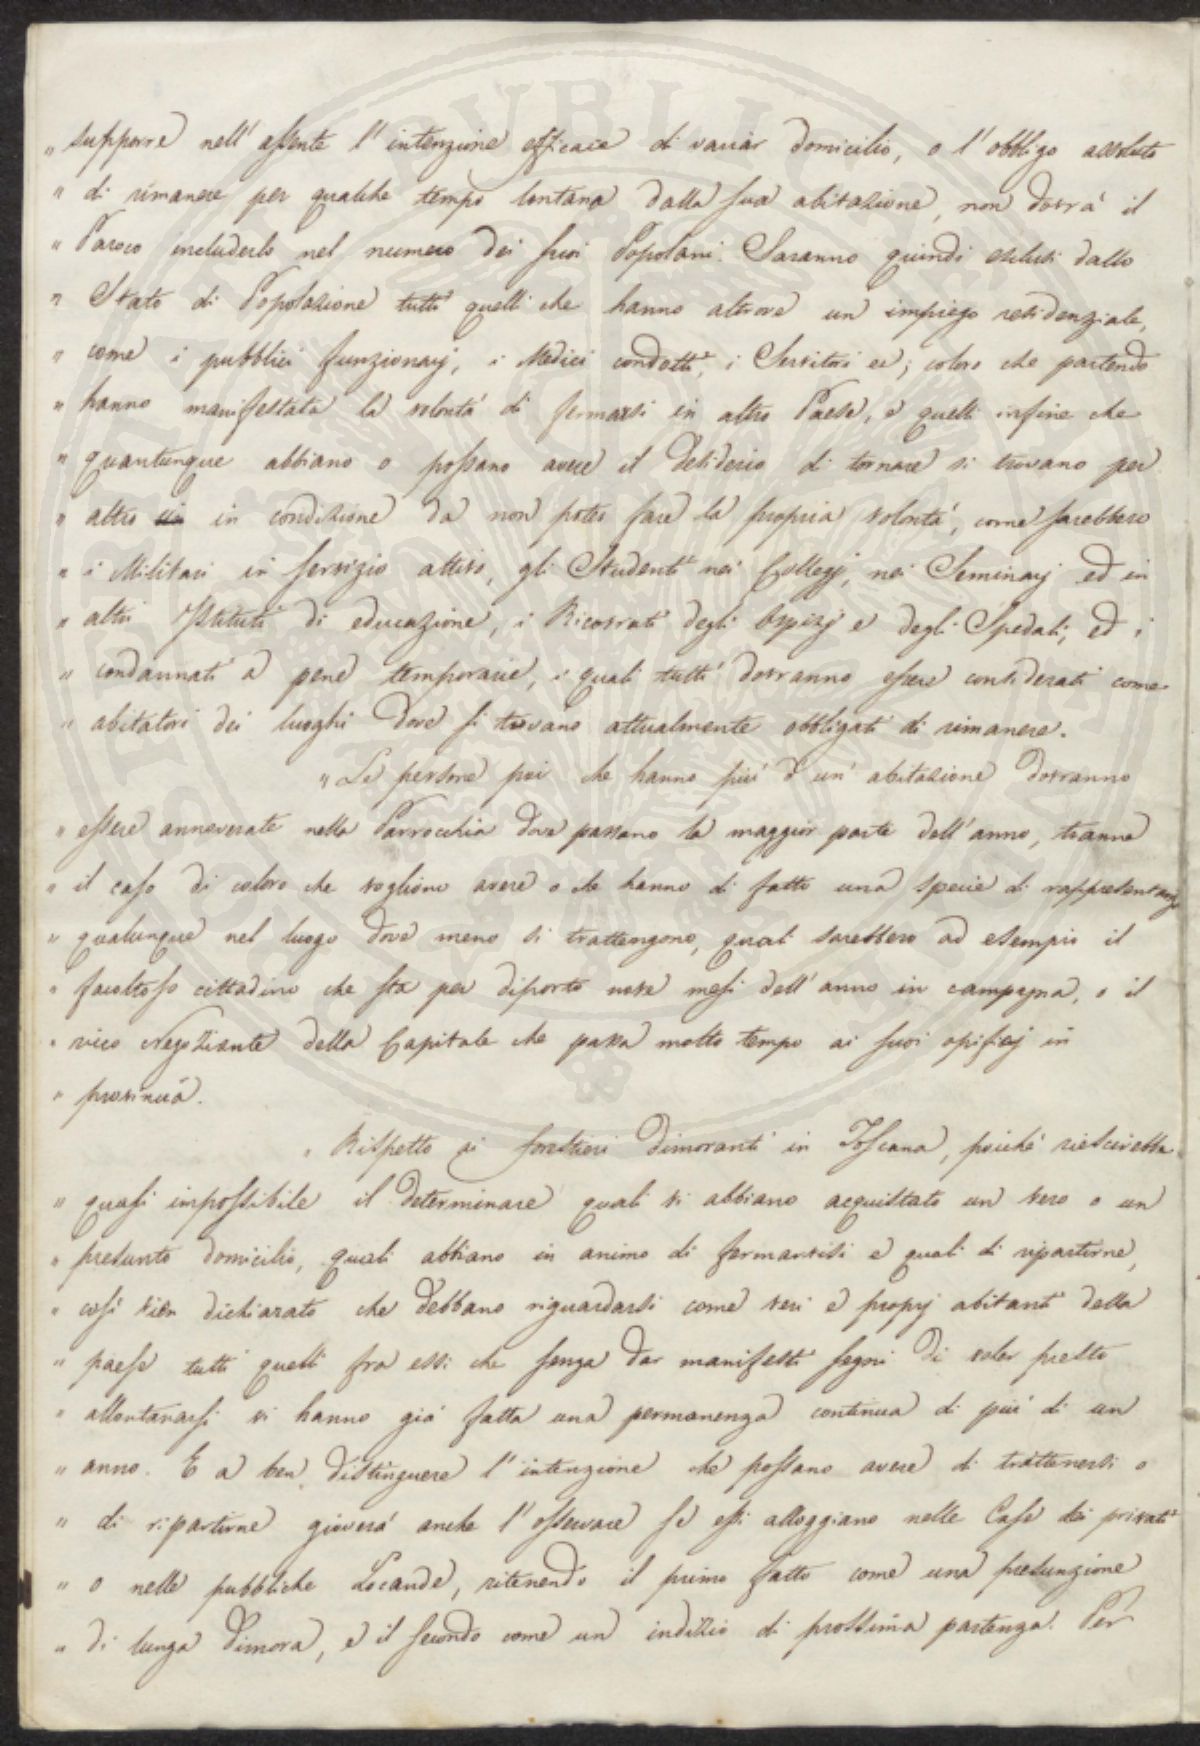 „ supporre nell' assente l' intenzione efficace di variar domicilio, o l' obbligo assoluto
„ di rimanere per qualche tempo lontano dalla sua abitazione, non dovrà il
„ Paroco includerlo nel numero dei suoi Popolani. Saranno quindi esclusi dallo
„ Stato di Popolazione tutti quelli che hanno altrove un impiego residenziale,
„ come i pubblici funzionarj, i Medici condotti, i Servitori ec; coloro che partendo
„ hanno manifestata la volontà di fermarsi in altro Paese, e quelli infine che
„ quantunque abbiano o possano avere il desiderio di tornare si trovano per
„ altro in condizione da non poter fare la propria volontà, come sarebbero
„ i Militari in servizio attivo, gli Studenti nei Collegj, nei Seminarj ed in
„ altri Istituti di educazione, i Ricovrati degli Ospizj e degli Spedali, ed i
„ condannati a pene temporarie, i quali tutti dovranno essere considerati come
„ abitatori dei luoghi dove si trovano attualmente obbligati di rimanere.
„ Le persone poi che hanno più d' un' abitazione dovranno
„ essere annoverate nella Parrocchia dove passano la maggior parte dell' anno, tranne
„ il caso di coloro che vogliono avere o che hanno di fatto una specie di rappresentanza
„ qualunque nel luogo dove meno si trattengono, quali sarebbero ad esempio il
„ facoltoso cittadino che sta per diporto nove mesi dell' anno in campagna, o il
„ ricco Negoziante della Capitale che passa molto tempo ai suoi opificj in
„ provincia.
„ Rispetto ai forestieri dimoranti in Toscana, poiché riescirebbe
„ quasi impossibile il determinare quali vi abbiano acquistato un vero o un
„ presunto domicilio, quali abbiano in animo di fermarvisi e quali di ripartirne,
„ così vien dichiarato che debbano riguardarsi come veri e proprj abitanti della
„ paese tutti quelli fra essi che senza dar manifesti segni di voler presto
„ allontanarsi vi hanno già fatta una permanenza continua di più di un
„ anno. E a ben distinguere l' intenzione che possano avere di trattenersi o
„ di ripartirne gioverà anche l' osservare se essi alloggiano nelle Case dei privati
„ o nelle pubbliche Locande, ritenendo il primo fatto come una presunzione
„ di lunga dimora, e il secondo come un indizio di prossima partenza. Per